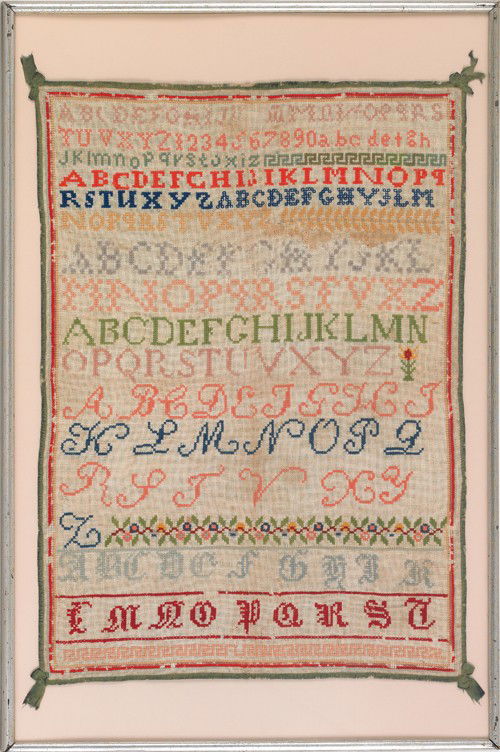 ABCDEFGHIJ MNOPQRS
TUVXYZ1234567890abcdefgh
JKlmnopqrstuxiz
ABCDEFGHIJKLMNOPq
RSTUXYZABCDEFGHYJLM
NOPQRSTVXYZ
ABCDEFGHYJKL
MNOPQRSTVXZ
ABCDEFGHIJKLMN
OPQRSTUVXYZ
ABCDEFGHI
KLMNOPQ
RSTVXY
Z
ABCDEFGHIK
LMNOPQRST